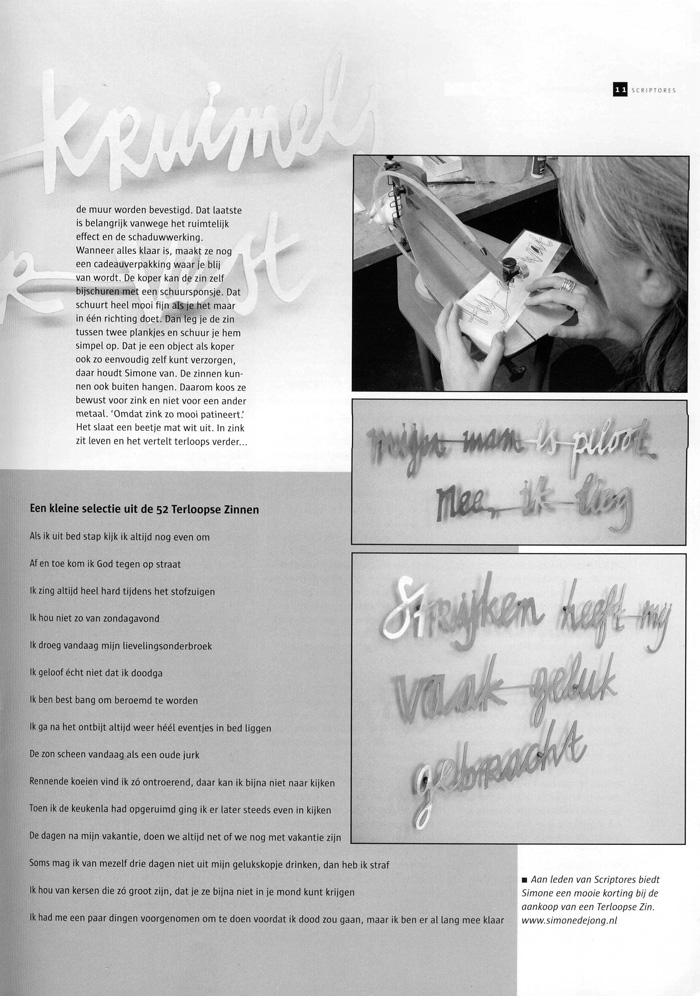 11 SCRIPTORES
kruimels
de muur worden bevestigd. Dat laatste
is belangrijk vanwege het ruimtelijk
effect en de schaduwwerking.
Wanneer alles klaar is, maakt ze nog
een cadeauverpakking waar je blij
van wordt. De koper kan de zin zelf
bijschuren met een schuursponsje. Dat
schuurt heel mooi fijn als je het maar
in één richting doet. Dan leg je de zin
tussen twee plankjes en schuur je hem
simpel op. Dat je een object als koper
ook zo eenvoudig zelf kunt verzorgen,
daar houdt Simone van. De zinnen kun-
nen ook buiten hangen. Daarom koos ze
bewust voor zink en niet voor een ander
metaal. ‘Omdat zink zo mooi patineert.’
Het slaat een beetje mat wit uit. In zink
zit leven en het vertelt terloops verder...
mijn mam is piloot
Nee, ik lieg
Strijken heeft mij
vaak geluk
gebracht
Een kleine selectie uit de 52 Terloopse Zinnen
Als ik uit bed stap kijk ik altijd nog even om
Af en toe kom ik God tegen op straat
Ik zing altijd heel hard tijdens het stofzuigen
Ik hou niet zo van zondagavond
Ik droeg vandaag mijn lievelingsonderbroek
Ik geloof écht niet dat ik doodga
Ik ben best bang om beroemd te worden
Ik ga na het ontbijt altijd weer héél eventjes in bed liggen
De zon scheen vandaag als een oude jurk
Rennende koeien vind ik zó ontroerend, daar kan ik bijna niet naar kijken
Toen ik de keukenla had opgeruimd ging ik er later steeds even in kijken
De dagen na mijn vakantie, doen we altijd net of we nog met vakantie zijn
Soms mag ik van mezelf drie dagen niet uit mijn gelukskopje drinken, dan heb ik straf
Ik hou van kersen die zó groot zijn, dat je ze bijna niet in je mond kunt krijgen
Ik had me een paar dingen voorgenomen om te doen voordat ik dood zou gaan, maar ik ben er al lang mee klaar
■ Aan leden van Scriptores biedt
Simone een mooie korting bij de
aankoop van een Terloopse Zin.
www.simonedejong.nl